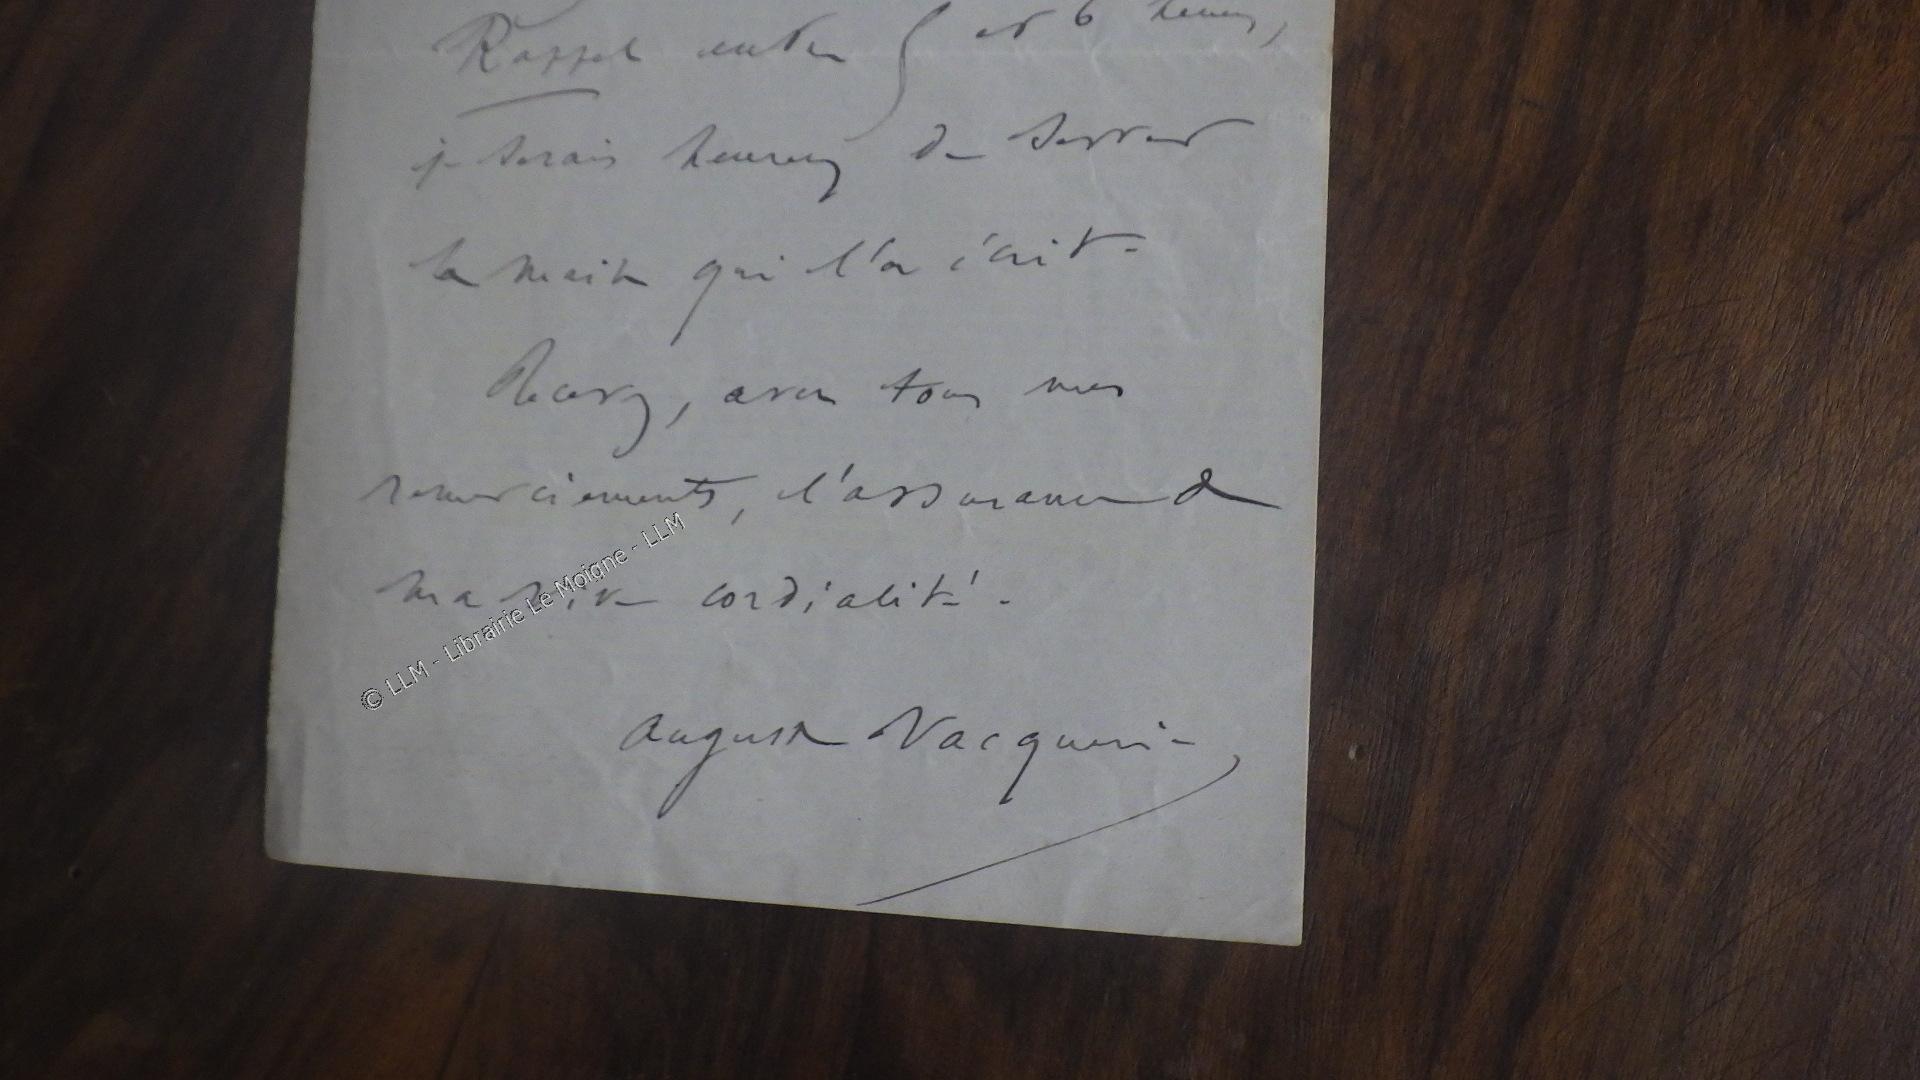 Rappel entre 5 et 6 heures,
je serais heureux de serrer
la main qui l'a écrit.
Recevez, avec tous mes
remerciements, l'assurance de
ma vive cordialité.
Auguste Vacquerie
© LLM - Librairie Le Moigne - LLM